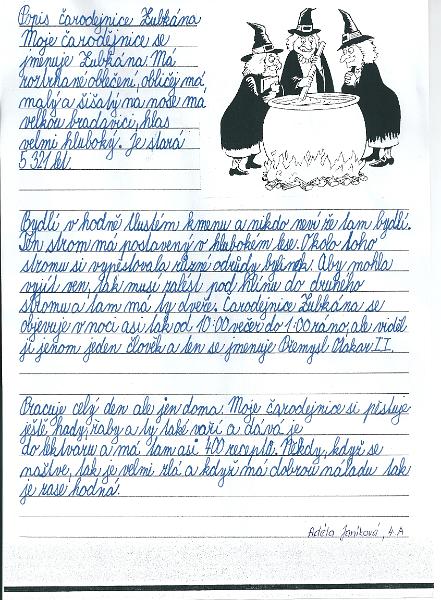 Popis čarodejnice Zubkána
Moje čarodějnice se
jmenuje Zubkána. Má
roztrhané oblečení, obličej má
malý a šišatý na nose má
velkou bradavici, hlas
velmi hluboký. Je stará
5 321 let.
Bydlí v hodně tlustém kmenu a nikdo neví že tam bydlí.
Ten strom má postavený v hlubokém lese. Okolo toho
stromu si vypěstovala různé odrůdy bylinek. Aby mohla
vyjít ven, tak musí zalést pod hlínu do druhého
stromu a tam má ty dveře. Čarodejnice Zubkána se
objevuje v noci asi tak od 10:00 večer do 1:00 ráno, ale viděl
ji jenom jeden člověk a ten se jmenuje Přemysl Otakar II.
Pracuje celý den ale jen doma. Moje čarodejnice si pěstuje
ještě hady, žáby a ty také vaří a dává je
do lektvaru a má tam asi 400 receptů. Někdy, když se
naštve, tak je velmi zlá a když má dobrou náladu tak
je zase hodná.
Adéla Janíková, 4.A